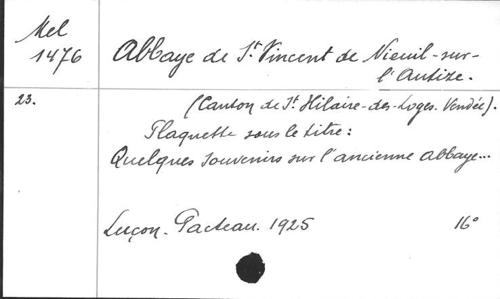 Mel
1476
Abbaye de St. Vincent de Nieuil-sur-
l'Autize.
23.
(Canton de St Hilaire-des-Loges. Vendée).
Plaquette sous le titre:
Quelques souvenirs sur l'ancienne abbaye...
Luçon. Pacteau. 1925
16°